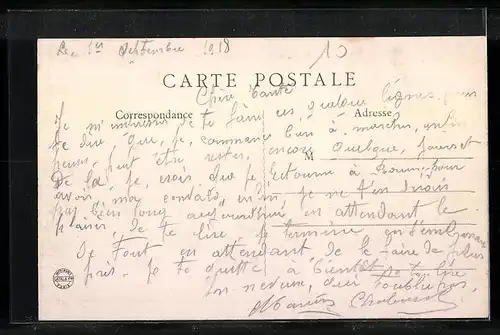 Le 1er Septembre 1918
10
CARTE POSTALE
Chère Tante
Correspondance
Adresse
Je m'empresse de te faire ces quelque lignes pour
te dire, que, je, commence bien à marcher, enfin
pense, peut être rester, encore quelque, jours et
M
De là, je, crois que je retourne à pour
avoir mon enfin, je ne t'en dirais
pas bien long aujourd'hui en attendant le
plaisir, de te lire, je termine en t'embrassant
De tout en attendant de le faire de plus
près. Je te quitte à bientôt de te lire
Ton neveu, qui t'oublie pas,